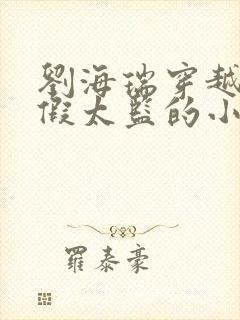 劉海瑞穿越
假太監的小
羅泰豪